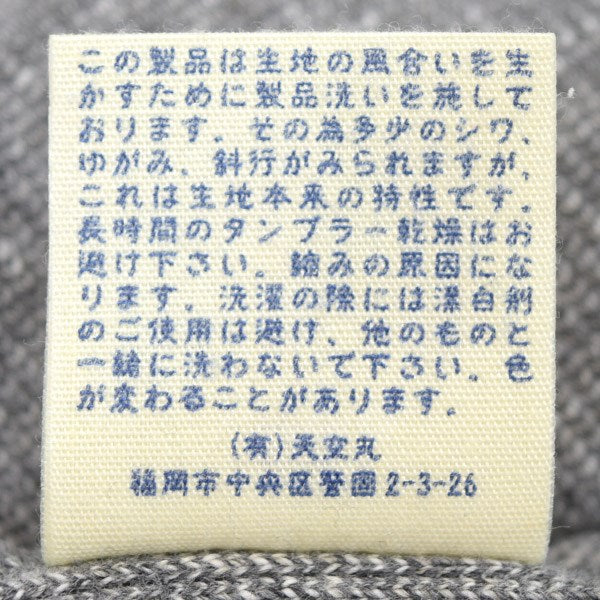 この製品は生地の風合いを生
かすために製品洗いを施して
おります。その為多少のシワ、
ゆがみ、斜行がみられますが、
これは生地本来の特性です。
長時間のタンブラー乾燥はお
避け下さい。縮みの原因にな
ります。洗濯の際には漂白剤
のご使用は避け、他のものと
一緒に洗わないで下さい。色
が変わることがあります。
(有)天立丸
福岡市中央区警固2-3-26